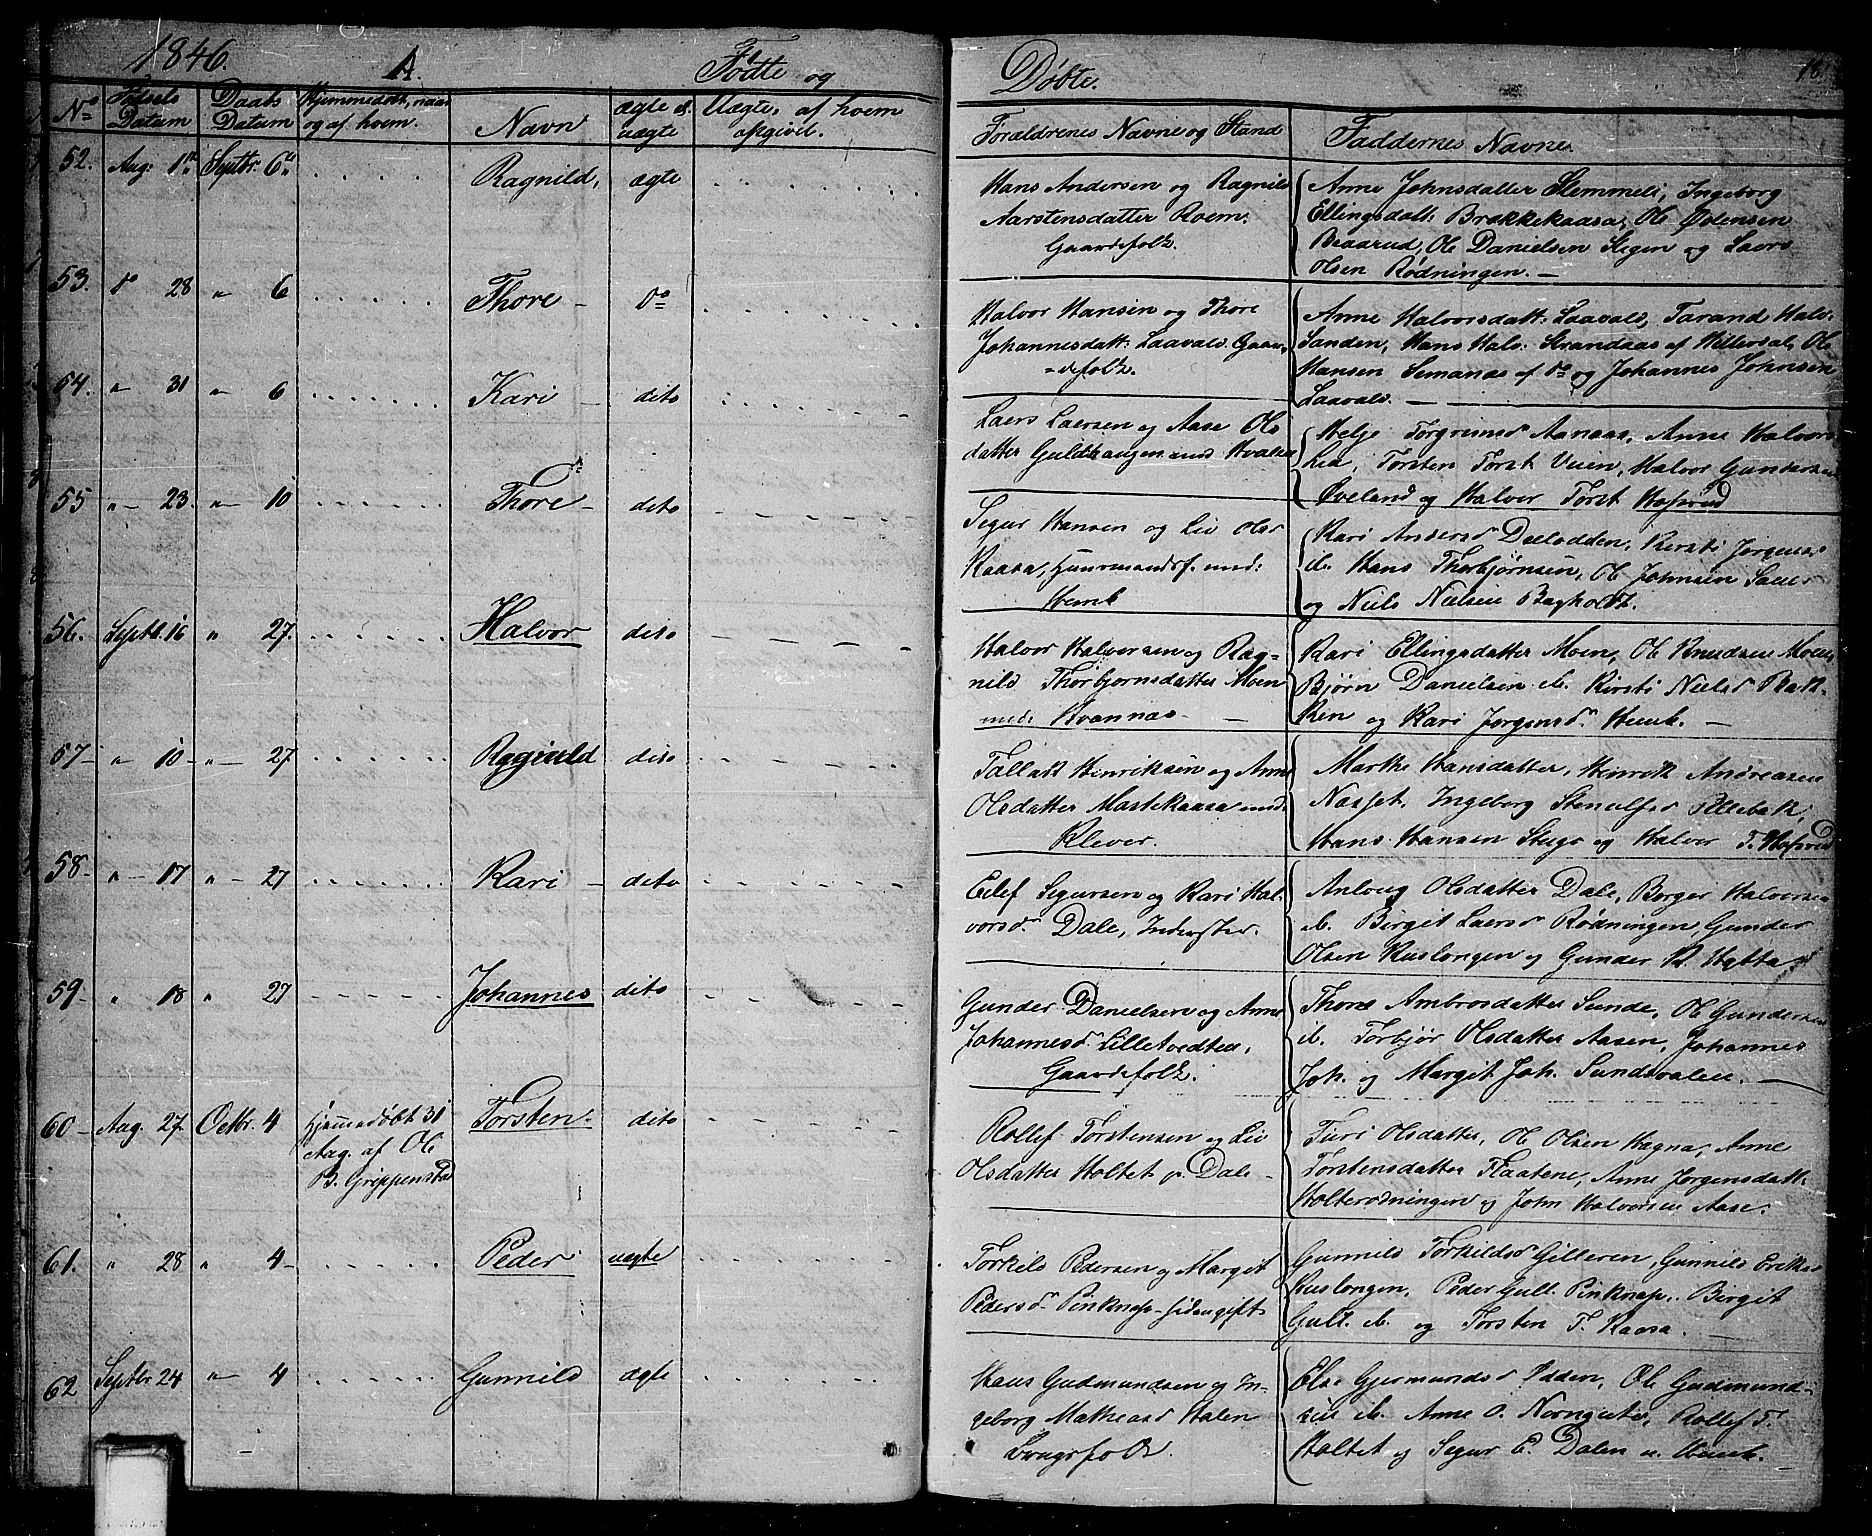 1846. A. Fødte og Døbte. 18.
No Fødsels Datum Daabs Datum Hjemmedøbt, naar og af hvem. Navn ægte el. uægte Uægte, af hvem opgivet. Forældrenes Navne og Stand Faddernes Navne.
52. Aug: 1ste Septbr. 6te Ragnild, ægte
Hans Andersen og Ragnild
Aarstensdatter Roem.
Gaardefolk.
Anne Johnsdatter Slemmeli, Ingeborg
Ellingsdatt: Brækkekaasa, Ole Ødensen
Beaarud, Ole Danielsen Stegen og Laers
Olsen Rødningen. —
53. do 28 " 6 Thore — do
Halvor Hansen og Thore
Johannesdatt: Laavald. Gaar-
defolk.
Anne Halvorsdatt: Laavald, Tarand Halv:
Sanden, Hans Halv: Strandaas af Hitterdal, Ole
Hansen Semanaas af do og Johannes Johnsen
Laavald. —
54. " 31 " 6 Kari — dito
Laers Laersen og Aase Ols
datter Guldhaugen med Hvalen
Helje Torgrimsd Aanaas, Anne Halvors
Lia, Torsten Torst Veien, Halvor Gundersen
Øveland og Halvor Torst Hafsrud
55 " 23. " 10 Thore — dito
Segur Hansen og Liv Olsd
Kaasa, Huusmandsf. med:
Hemb
Kari Andersd Dælodden, Kersti Jørgensd
ib. Hans Thorbjørnsen, Ole Johnsen
og Niels Nielsen Bagholdt.
56. Septb. 16 " 27. Halvor dito
Halvor Halvorsen og Rag-
nild Thorbjornsdatter Moen
med: Hvannas —
Kari Ellingsdatter Moen, Ole Knudsen Moen
Bjørn Danielsen ib. Kirsti Nielsd Bak-
ken og Kari Jørgensdr Hemb. —
57 " 10 " 27. Ragnild dito
Tallak Henriksen og Anne
Olsdatter Mastekaasa med
Klever.
Marthe Hansdatter, Henrik Andreasen
Nasset, Ingeborg Stenulfsd
Hans Hansen Stugo og Halvor T. Hafsrud
58 " 17 " 27 Kari — dito
Eilef Segursen og Kari Hal-
vorsdr Dale, Inderster.
Anlaug Olsdatter Dale, Borger Halvorsen
ib. Birgit Laersdr Rødningen, Gunder
Olsen Kuslongen og Gunder K. Hytta
59 " 18 " 27 Johannes dito
Gunder Danielsen og Anne
Johannesdr Lilletvedten.
Gaardefolk.
Thone Ambrosdatter Sunde, Ole Gundersen
ib. Torbjør Olsdatter Aasen, Johannes
Joh. og Margit Joh. Sundsvalen. —
60 Aug. 27. Octbr. 4 Hjemmedøbt 31 Aug. af Ole B. Grippenstad Torsten. dito
Rollef Torstensen og Liv
Olsdatter Holtet p. Dale —
Turi Olsdatter, Ole Olsen Hagna, Anne
Torstensdatter Flaatene, Anne Jørgensdatt.
Holterødningen og John Halvorsen Aase.
61. " 28 " 4 Peder uægte
Torkild Pedersen og Margit
Pedersdr Pinknap. — Sidengift.
Gunnild Torkildsd Gilleren, Gunnild Eriksd
Kuslongen, Peder Gull. Pinknap. Birgit
Gull. ib. og Torsten T. Kaasa. —
62 Septbr. 24 " 4 Gunnild ægte
Hans Gudmundsen og In-
geborg Matheasd Halen
Brugsfolk.
Else Gjermundsd Odden, Ole Gudmund-
sen ib. Anne O. Rollef T.
Holtet og Segur E. Dalen u. Hemb. —